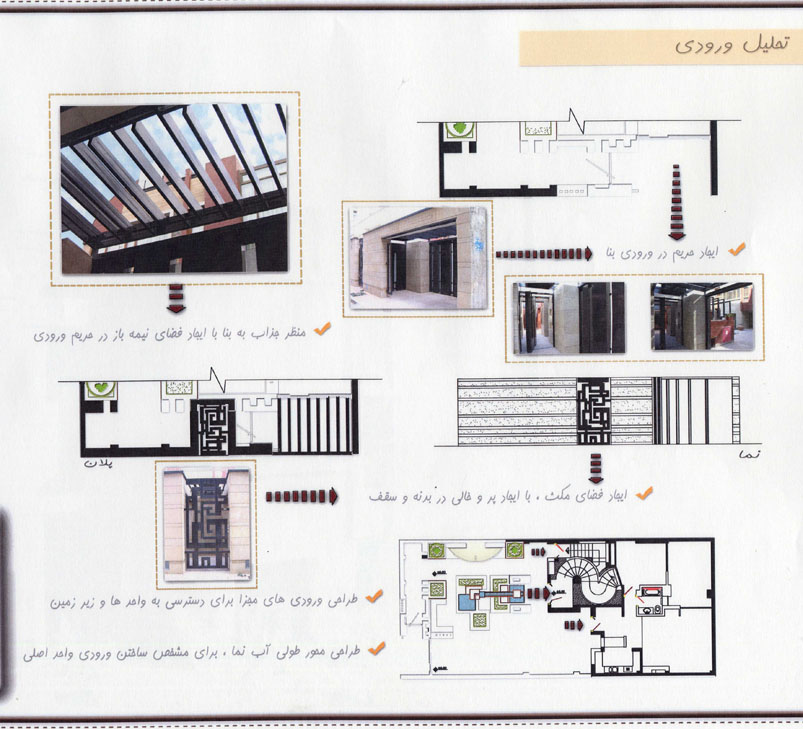 تحلیل ورودی
ایجاد حریم در ورودی بنا
منظر جذاب به بنا با ایجاد فضای نیمه باز در حریم ورودی
پلان
نما
ایجاد فضای مکث ، با ایجاد پر و خالی در بدنه و سقف
طراحی ورودی های مجزا برای دسترسی به واحد ها و زیر زمین
طراحی محور طولی آب نما ، برای مشخص ساختن ورودی واحد اصلی